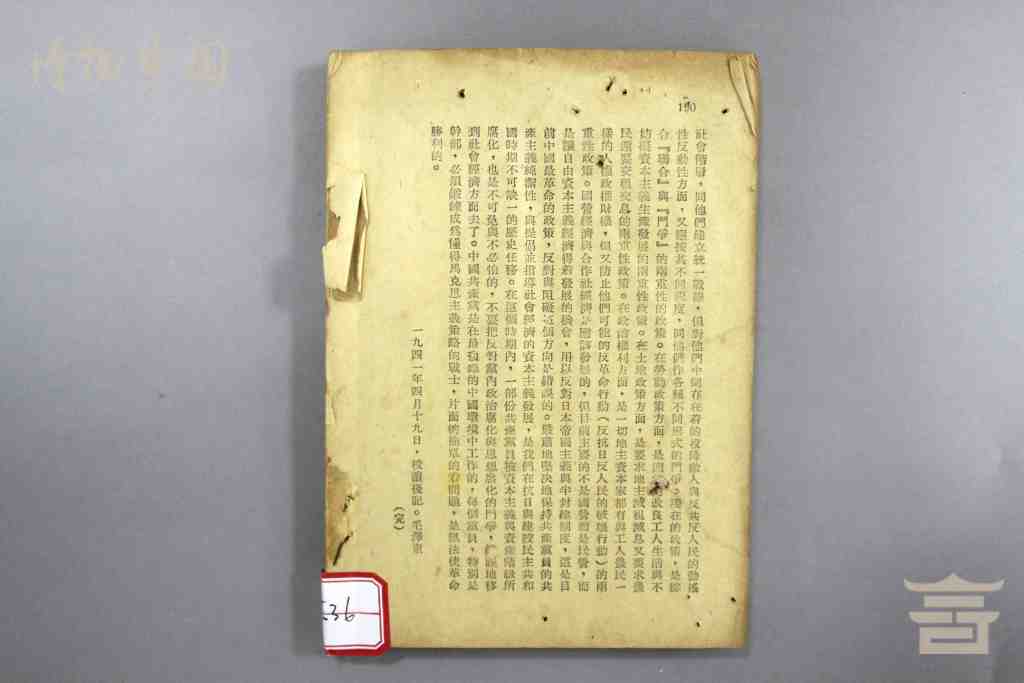 190
社會階層,同他們建立統一戰線,但對他們中間存在着的投降敵人與反共反人民的動搖
性反動性方面,又應按其不同程度,同他們作各種不同形式的鬥爭。現在的政策,是綜
合『聯合』與『鬥爭』的兩重性的政策。在勞動政策方面,是的改良工人生活與不
妨礙資本主義生產發展的兩重性政策。在土地政策方面,是要求地主減租減息又要求農
民還要交租交息的兩重性政策。在政治權利方面,是一切地主資本家都有與工人農民一
樣的人權政權財權,但又防止他們可能的反革命行動(反抗日反人民的破壞行動)的兩
重性政策。國營經濟與合作社經濟是應該發展的,但目前主要的不是國營而是民營,而
是讓自由資本主義經濟得着發展的機會,用以反對日本帝國主義與半封建制度,這是目
前中國最革命的政策,反對與阻礙這個方向是錯誤的。嚴肅地堅決地保持共產黨員的共
產主義純潔性,與提倡並指導社會經濟的資本主義發展,是我們在抗日與建設民主共和
國時期不可缺一的歷史任務。在這個時期內,一部份共產黨員被資本主義與資產階級所
腐化,也是不可免與不必怕的,不要把反對黨內政治腐化與思想腐化的鬥爭,地移
到社會經濟方面去了。中國共產黨是在最複雜的中國環境中工作的,每個黨員,特別是
幹部,必須鍛鍊成為懂得馬克思主義策略的戰士,片面的簡單的看問題,是無法使革命
勝利的。
一九四一年四月十九日,校讀後記。毛澤東
(完)
36